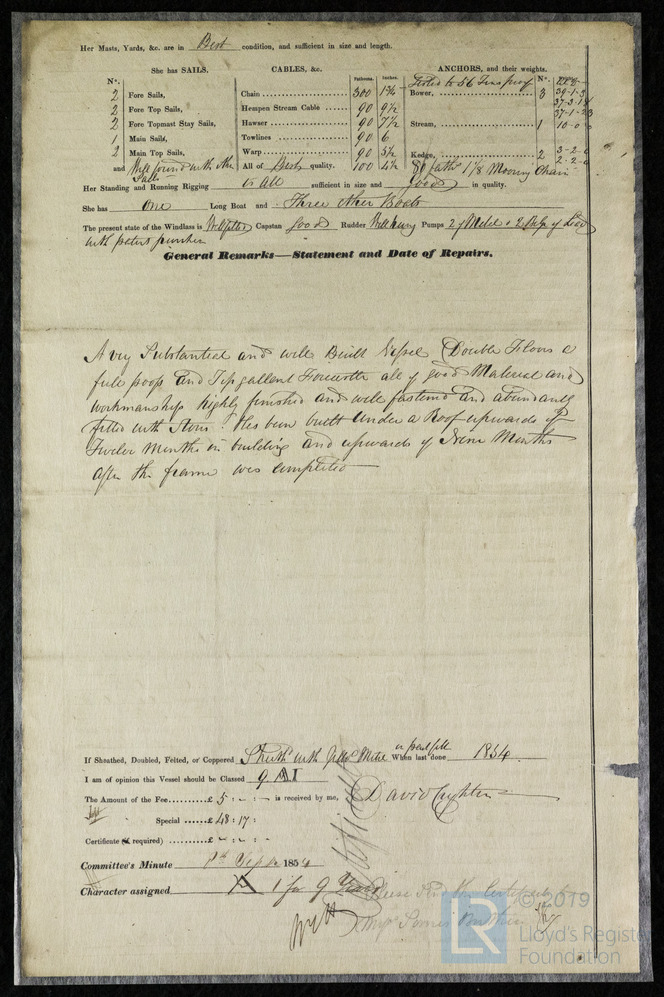 Her Masts, Yards, &c. are in Best condition, and sufficient in size and length.
She has SAILS.
CABLES, &c.
Fathoms.
Inches.
ANCHORS, and their weights.
No.
No.
Tested to 56 Tons proof
2 Fore Sails,
Chain 300
Bower, 3
2 Fore Top Sails,
Hempen Stream Cable 90 9½
2 Fore Topmast Stay Sails,
Hawser 90 7½
Stream, 1
1 Main Sails,
Towlines 90 6
2 Main Top Sails,
Warp 90 5½
Kedge, 2
and Well found with other Sails
All of Best quality. 100 4½
80 faths 1⅛ Mooring Chain
Her Standing and Running Rigging is all sufficient in size and good in quality.
She has one Long Boat and Three other Boats
The present state of the Windlass is Capstan good Rudder Pumps 2 of Metal & 2 of Lead
with patent
General Remarks—Statement and Date of Repairs.
A very Substantial and well Built Vessel Double Floors a
full poop and Topgallant Forecastle all of good Material and
workmanship highly finished and well fastened and abundantly
fitted with Stores. Has been built under a Roof upwards of
Twelve Months in building and upwards of Months
after the frame was completed
If Sheathed, Doubled, Felted, or Coppered Sheathd with Yellow Metal When last done 1854
I am of opinion this Vessel should be Classed 9 A1
The Amount of the Fee £ 5 : - : - is received by me,
David
Special £ 48 : 17 :
Certificate (if required) £ - : - :
Committee's Minute 8th Septr 1854
Character assigned A 1 for 9 Years
Please send the Certificate to
© 2019
LR
Lloyd's Register
Foundation